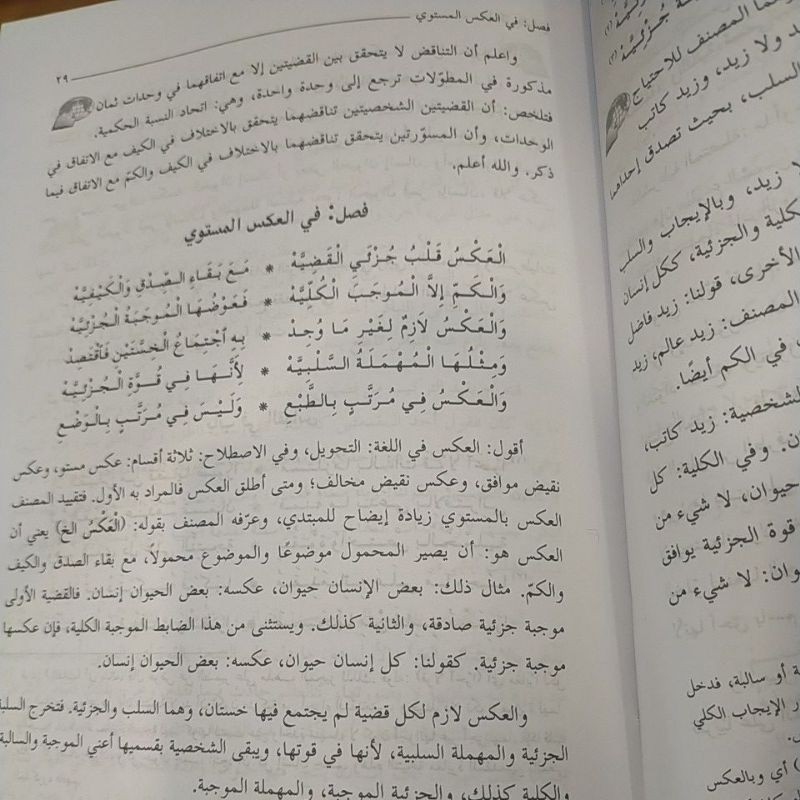 فصل: في العكس المستوي
٢٩
واعلم أن التناقض لا يتحقق بين القضيتين إلا مع اتفاقهما في وحدات ثمان
مذكورة في المطوّلات ترجع إلى وحدة واحدة، وهي: اتحاد النسبة الحكمية.
فتلخص: أن القضيتين الشخصيتين تناقضهما يتحقق بالاختلاف في الكيف مع الاتفاق في
الوحدات، وأن المسوّرتين يتحقق تناقضهما بالاختلاف في الكيف والكمّ مع الاتفاق فيما
ذكر. والله أعلم.
فصل: في العكس المستوي
الْعَكْسُ قَلْبُ جُزْئَيِ الْقَضِيَّهْ * مَعَ بَقَاءِ الصِّدْقِ وَالْكَيْفِيَّهْ
وَالْكَمِّ إِلاَّ الْمُوجَبَ الْكُلِّيَّهْ * فَعَوْضُهَا الْمُوجَبَةُ الْجُزْئِيَّهْ
وَالْعَكْسُ لاَزِمٌ لِغَيْرِ مَا وُجِدْ * بِهِ اجْتِمَاعُ الْخِسَّتَيْنِ فَاقْتَصِدْ
وَمِثْلُهَا الْمُهْمَلَةُ السَّلْبِيَّهْ * لأَنَّهَا فِي قُوَّةِ الْجُزْئِيَّهْ
وَالْعَكْسُ فِي مُرَتَّبٍ بِالطَّبْعِ * وَلَيْسَ فِي مُرَتَّبٍ بِالْوَضْعِ
أقول: العكس في اللغة: التحويل، وفي الاصطلاح: ثلاثة أقسام: عكس مستو، وعكس
نقيض موافق، وعكس نقيض مخالف؛ ومتى أطلق العكس فالمراد به الأول. فتقييد المصنف
العكس بالمستوي زيادة إيضاح للمبتدي، وعرّفه المصنف بقوله: (الْعَكْسُ الخ) يعني أن
العكس هو: أن يصير المحمول موضوعًا والموضوع محمولاً، مع بقاء الصدق والكيف
والكمّ. مثال ذلك: بعض الإنسان حيوان، عكسه: بعض الحيوان إنسان. فالقضية الأولى
موجبة جزئية صادقة، والثانية كذلك. ويستثنى من هذا الضابط الموجبة الكلية، فإن عكسها
موجبة جزئية. كقولنا: كل إنسان حيوان، عكسه: بعض الحيوان إنسان.
والعكس لازم لكل قضية لم يجتمع فيها خستان، وهما السلب والجزئية. فتخرج
الجزئية والمهملة السلبية، لأنها في قوتها، ويبقى الشخصية بقسميها أعني الموجبة والسالبة
والكلية كذلك، والجزئية الموجبة، والمهملة الموجبة.
المصنف للاحتياج
ولا زيد، وزيد كاتب
السلب، بحيث تصدق إحداهما
زيد، وبالإيجاب والسلب
الكلية والجزئية، ككل إنسان
الأخرى، قولنا: زيد فاضل
المصنف: زيد عالم، زيد
في الكم أيضًا.
زيد كاتب،
وفي الكلية: كل
حيوان، لا شيء من
قوة الجزئية يوافق
لا شيء من
أو سالبة، فدخل
الإيجاب الكلي
أي وبالعكس